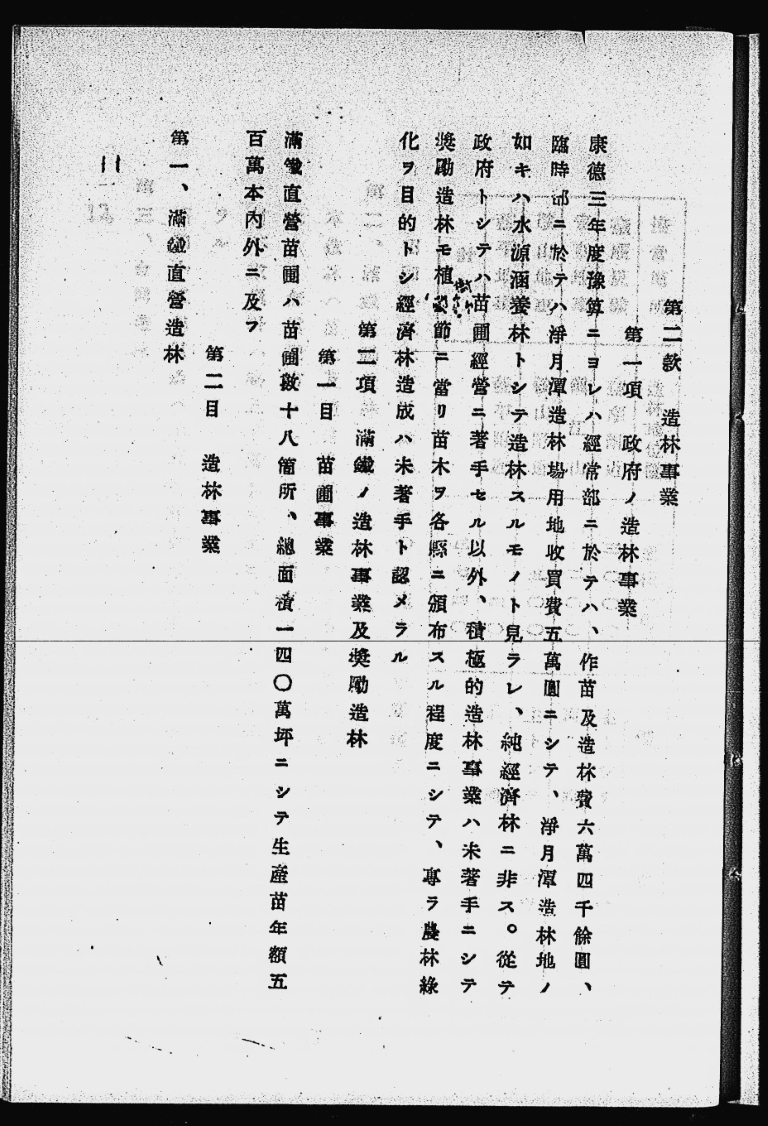 第二款　造林事業
第一項　政府ノ造林事業
康德三年度豫算ニヨレハ經常部ニ於テハ、作苗及造林費六萬四千餘圓、
臨時部ニ於テハ淨月潭造林場用地收買費五萬圓ニシテ、淨月潭造林地ノ
如キハ水源涵養林トシテ造林スルモノト見ラレ、純經濟林ニ非ス。從テ
政府トシテハ苗圃經營ニ著手セル以外、積極的造林事業ハ未著手ニシテ
奬勵造林モ植樹節ニ當リ苗木ヲ各縣ニ頒布スル程度ニシテ、專ラ農林綠
化ヲ目的トシ經濟林造成ハ未著手ト認メラル
第二項　滿鐵ノ造林事業及奬勵造林
第一目　苗圃事業
滿鐵直營苗圃ハ苗圃數十八箇所、總面積一四〇萬坪ニシテ生產苗年額五
百萬本內外ニ及フ
第二目　造林事業
第一、滿鐵直營造林